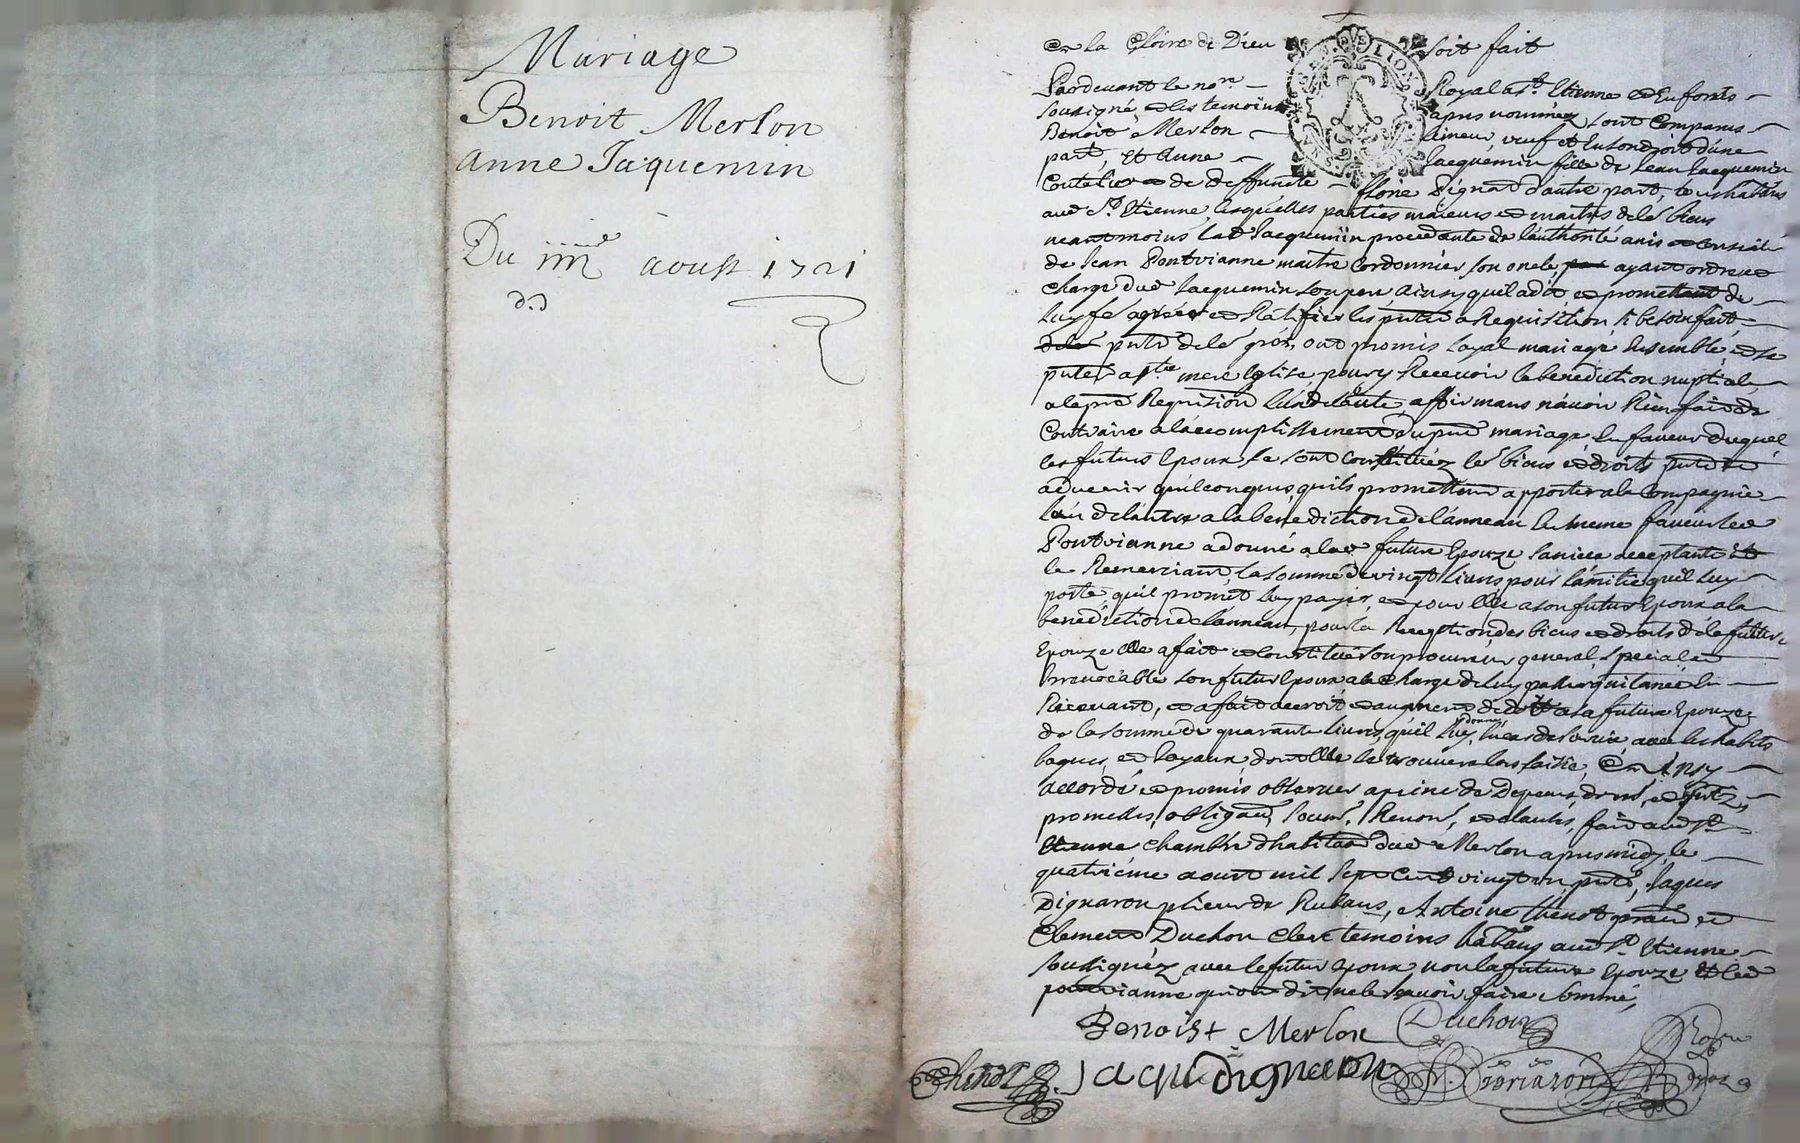 Mariage
Benoit Merlon
anne Jaquemin
Du iiii aoust 1721
En la Gloire de Dieu soit fait
Pardevant le nore Royal a st. Etienne en forets
soussigné et les temoins apres nommez sont comparus
Benoit Merlon limeur, veuf et en son droit d'une
part, Et Anne Jacquemin fille de Jean Jacquemin
Coutelier et de deffuncte florie Dignat d'autre part, habitans
aud St. Etienne, lesquelles parties majeurs et maitres de leś biens
neantmoins lad Jacquemin procedante de l'authorité avis et conseil
de Jean Pontvianne maitre Cordonnier son oncle, ayant ordre et
charge dud Jacquemin son pere ainsy qu'il a dit et promettant de
luy fe agréer et Ratifier les pntes a Requisition, si besoin fait
pntes de leś grés, ont promis loyal mariage Ensemble et se
pnter a ste mere Eglise pour y Recevoir la benediction nuptiale
a la pre Requision L'un de l'autre, affirmans n'avoir Rien fait de
Contraire a l'accomplissement du pnt mariage, En faveur duquel
les futurs Epoux se sont constituéz leś biens et droits pnts et
advenir quelconques, quils promettent apporter a la Compagnie
l'un de l'autre a la benediction de l'anneau En meme faveur led
Pontvianne a donné a lad future Epouze sa niece acceptante et
le Remerciant, la somme de vingt livres pour l'amitie quil luy
porte, quil promet luy payer, et pour Elle a son futur Epoux a la
benediction de l'anneau, pour la Reception des biens et droits de la future
Epouze Elle a fait et constitué son procureur general, special et
Irrevocable son futur Epoux a la charge de luy passer quitance En
Recevant, et a fait accroit et augment de dot a sa future Epouze
de la somme de quarante livres, quil luy donne, En cas de survie, avec les habits
bagues, et Joyaux dont Elle se trouvera lors saisie, Et Ainsy
accordé et promis observer a peine de Depens, dom, et Intz,
promesses, obligaons, soum, Renon, et clauses, fait aud St
Etienne chambre d'habitaon dud Merlon apres midy, le
quatrieme aoust mil sept cent vingt un, pnts, Jaques
Dignaron plieur de Rubans, Antoine Thenot praen et
Clement Duchon Clerc temoins habans aud St. Etienne
soussignéz avec le futur Epoux, non la future Epouze Et led
pontvianne qui ont dit ne le sçavoir faire sommé,
Benoist Merlon Duchon
Thenot Jaque Dignaron